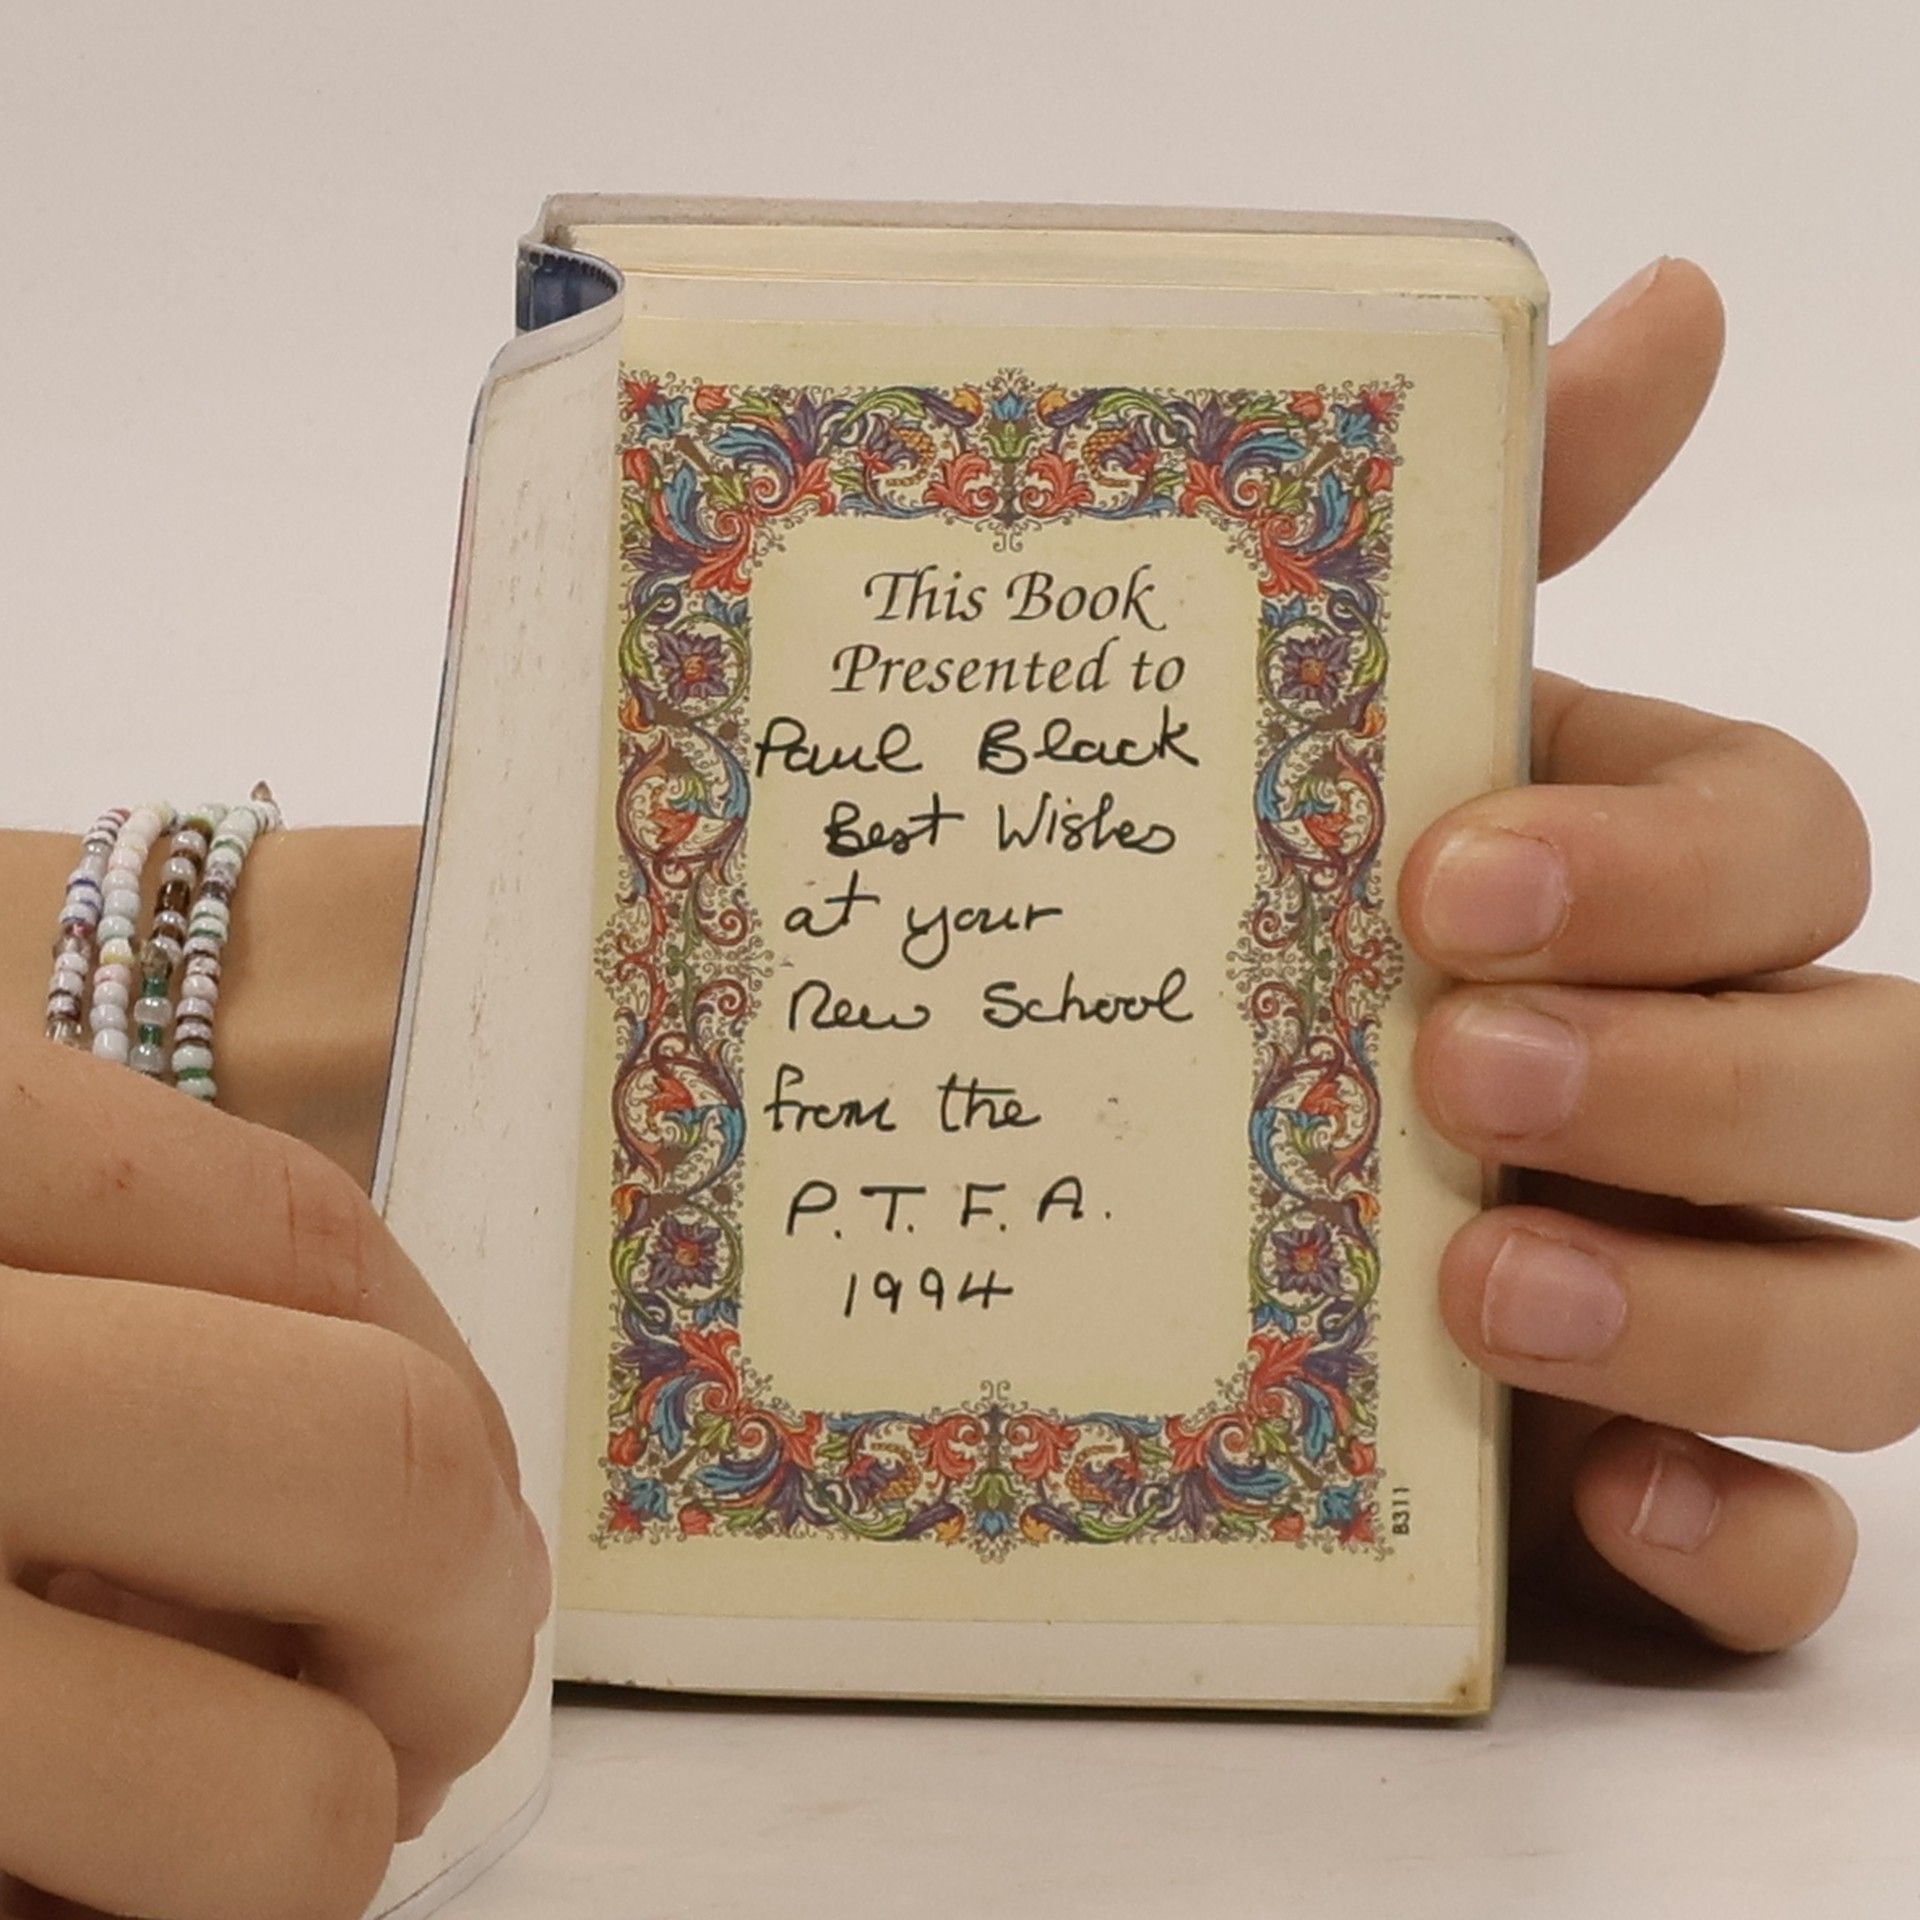 This Book
Presented to
Paul Black
Best Wishes
at your
New School
from the
P.T.F.A.
1994
B311